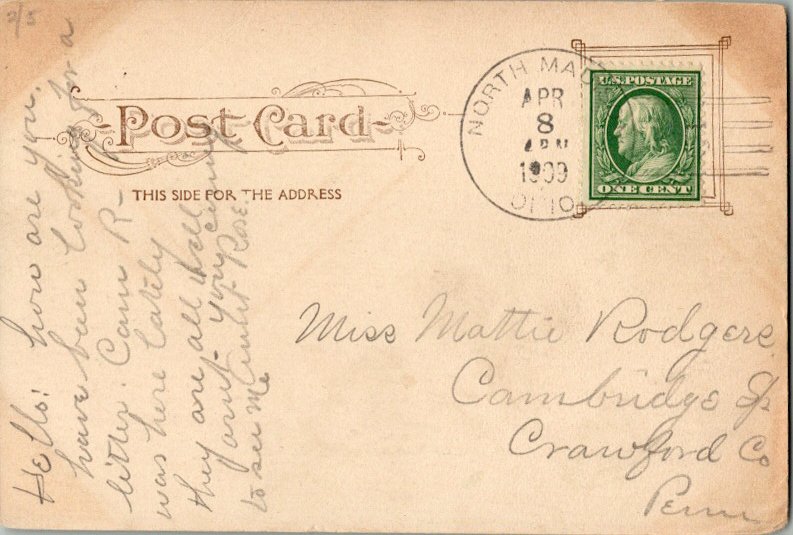 Post Card
THIS SIDE FOR THE ADDRESS
NORTH MAD
APR
8
1909
OHIO
U.S. POSTAGE
ONE CENT
Hello! how are you,
have been looking for a
letter. Cam R-
was here lately
they are all well
arnt you coming
to see me Aunt Rose
Miss Mattie Rodgers
Cambridge Sp
Crawford Co
Penn